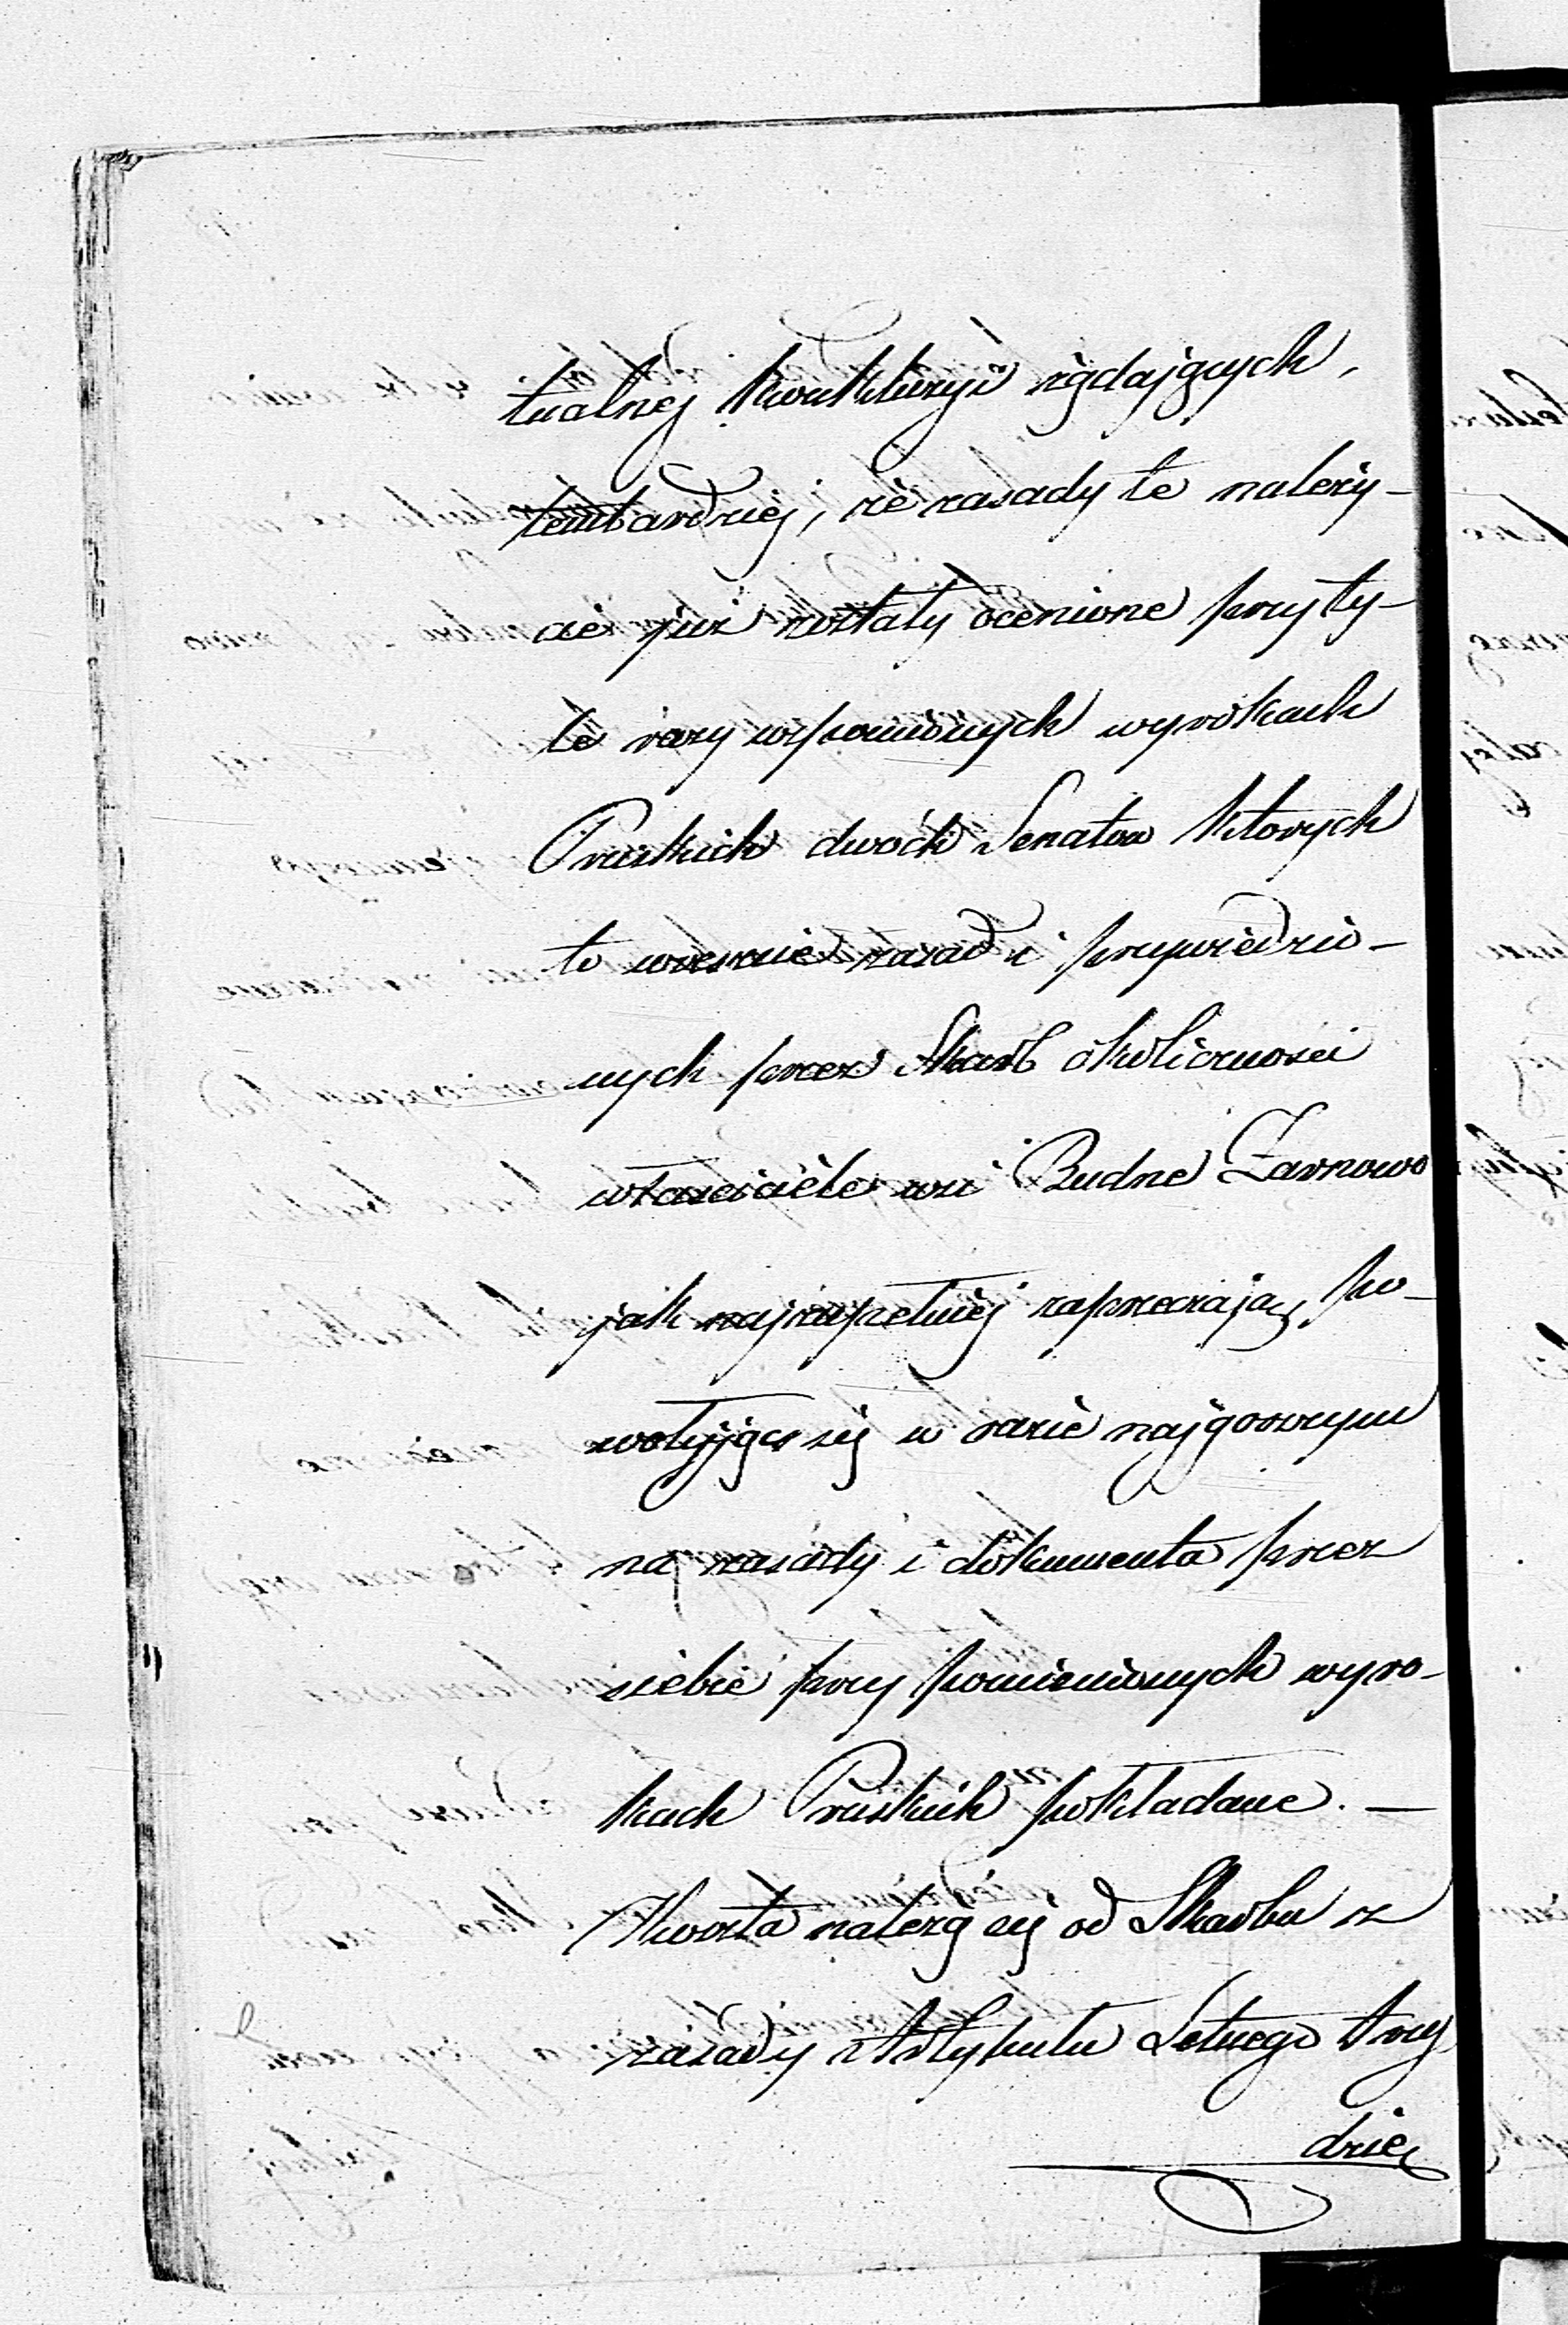 tualnej kwerklucyi rządających,
tembardziej, że zasady te należy-
cie już zostały ocenione przyty-
le razy wspomnionych wyrokach
Pruskich dwóch Senatów których
to wreszcie zasad i przywiedzio-
nych przez Skarb okoliczności
właściciele wsi Budne Żarnowo
jak najzupełniej zaprzeczają, po-
wołując się w razie najgorszym
na zasady i dokumenta przez
siebie przy pomienionych wyro-
kach Pruskich pokładane. —
Kwota należąca się od Skarbu z
zasady Artykułu Setnego trzy
dzie